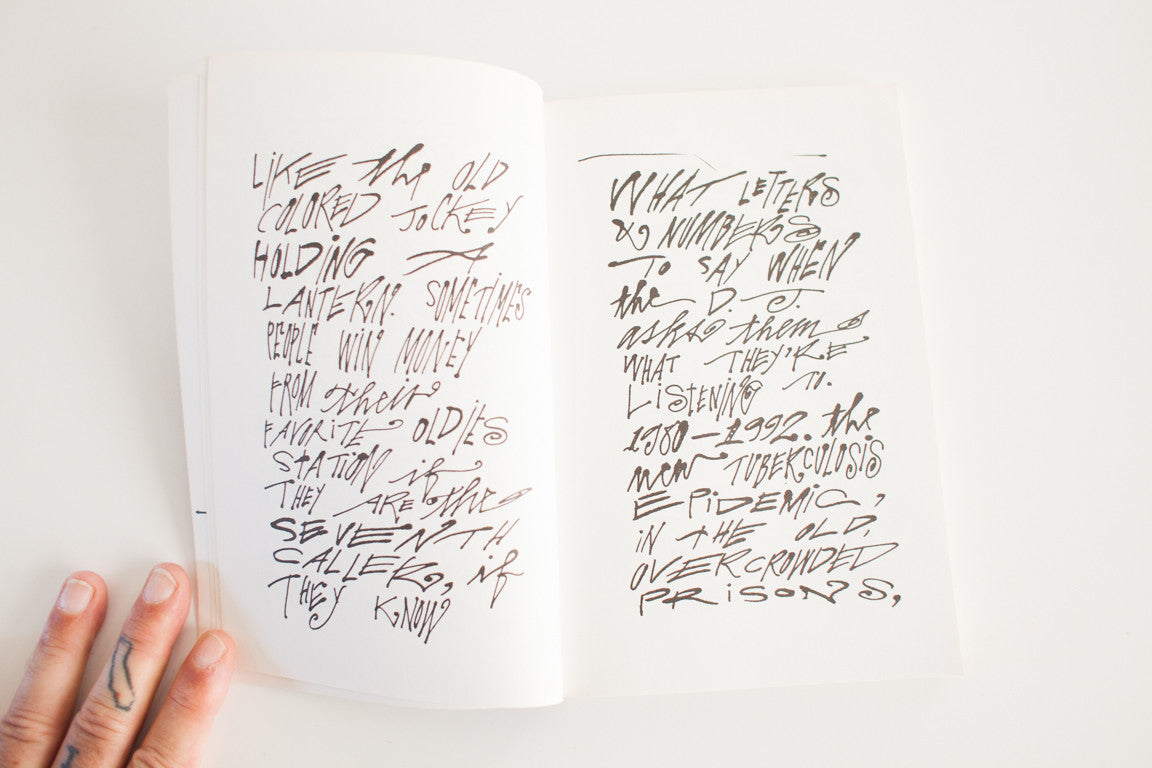 LiKE the OLD
COLORED JOCKEY
HOLDiNG A
LANTERN. SOMETIMES
PEOPLE WIN MONEY
FROM their
FAVORITE OLDIES
STATION if
THEY ARE the
SEVENTH
CALLER, if
THEY KNOW
WHAT LETTERS
& NUMBERS
TO SAY WHEN
the D. J.
asks them
WHAT THEY'RE
LiSTENING TO.
1980-1992. the
new TUBERCULOSIS
EPiDEMiC,
iN THE OLD,
OVERCROWDED
PRiSONS,